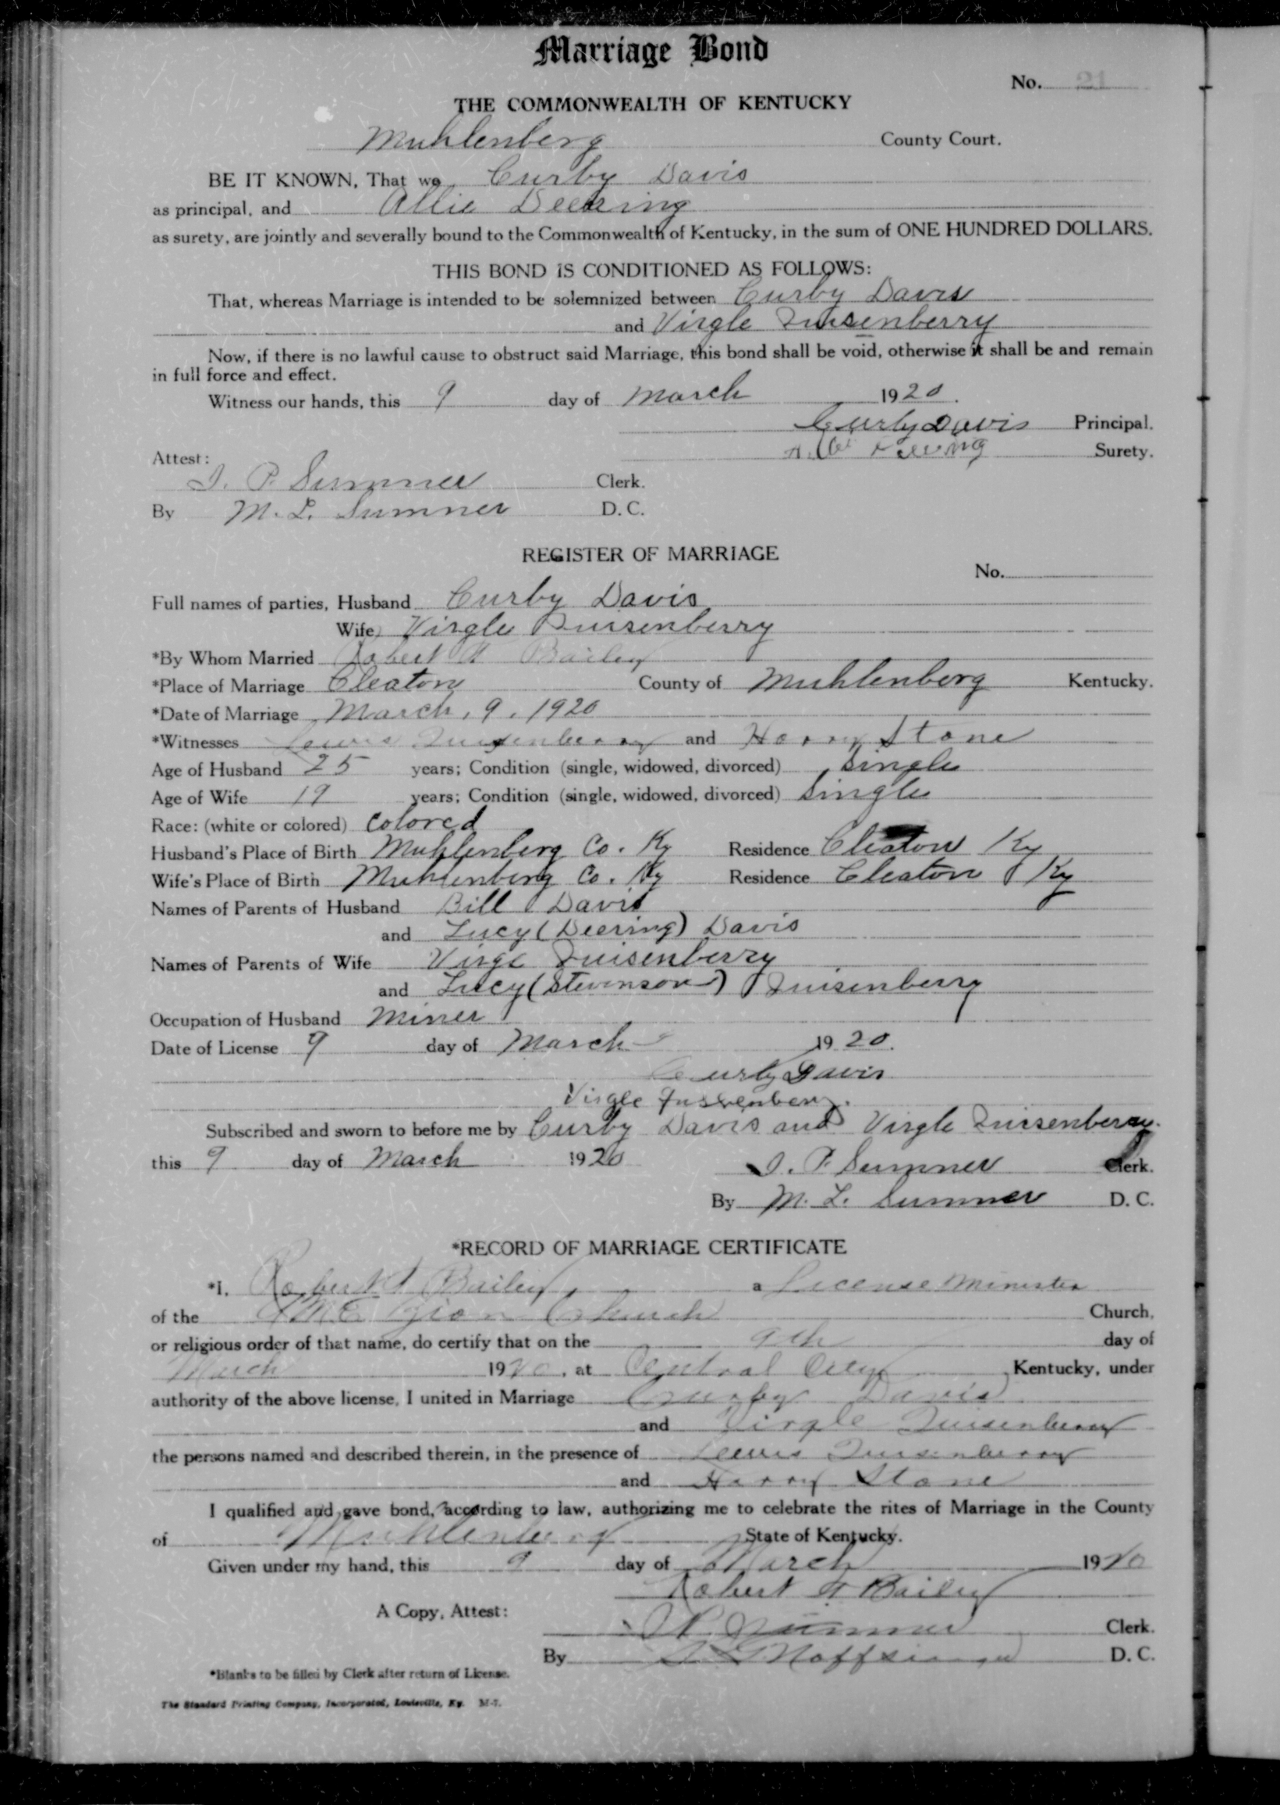 Marriage Bond
No. 21
THE COMMONWEALTH OF KENTUCKY
Muhlenberg County Court.
BE IT KNOWN, That we Curby Davis
as principal, and Allie Deering
as surety, are jointly and severally bound to the Commonwealth of Kentucky, in the sum of ONE HUNDRED DOLLARS.
THIS BOND IS CONDITIONED AS FOLLOWS:
That, whereas Marriage is intended to be solemnized between Curby Davis
and Virgle Quisenberry
Now, if there is no lawful cause to obstruct said Marriage, this bond shall be void, otherwise it shall be and remain
in full force and effect.
Witness our hands, this 9 day of March 1920.
Curby Davis Principal.
Attest: Surety.
J. P. Sumner Clerk.
By M. L. Sumner D. C.
REGISTER OF MARRIAGE
No.
Full names of parties, Husband Curby Davis
Wife Virgle Quisenberry
*By Whom Married Robert H Bailey
*Place of Marriage Cleaton County of Muhlenberg Kentucky.
*Date of Marriage March, 9, 1920
*Witnesses Lewis Quisenberry and Harry Stone
Age of Husband 25 years; Condition (single, widowed, divorced) Single
Age of Wife 19 years; Condition (single, widowed, divorced) Single
Race: (white or colored) Colored
Husband's Place of Birth Muhlenberg Co. Ky Residence Cleaton Ky
Wife's Place of Birth Muhlenberg Co. Ky Residence Cleaton Ky
Names of Parents of Husband Bill Davis
and Lucy (Deering) Davis
Names of Parents of Wife Virge Quisenberry
and Lucy (Stevinson) Quisenberry
Occupation of Husband Miner
Date of License 9 day of March 1920.
Curby Davis
Virgle
Subscribed and sworn to before me by Curby Davis and Virgle Quisenberry
this 9 day of March 1920 J. P. Sumner Clerk.
By M. L. Sumner D. C.
*RECORD OF MARRIAGE CERTIFICATE
*I, Robert H Bailey a License Minister
of the A M E Zion Church Church,
or religious order of that name, do certify that on the 9th day of
March 1920, at Central City Kentucky, under
authority of the above license, I united in Marriage Curby Davis
and Virgle Quisenberry
the persons named and described therein, in the presence of Lewis Quisenberry
and Harry Stone
I qualified and gave bond, according to law, authorizing me to celebrate the rites of Marriage in the County
of Muhlenberg State of Kentucky.
Given under my hand, this 9 day of March 1920
Robert H Bailey
A Copy, Attest:
J P Sumner Clerk.
By Noffsinger D. C.
*Blanks to be filled by Clerk after return of License.
The Standard Printing Company, Incorporated, Louisville, Ky. M-7.